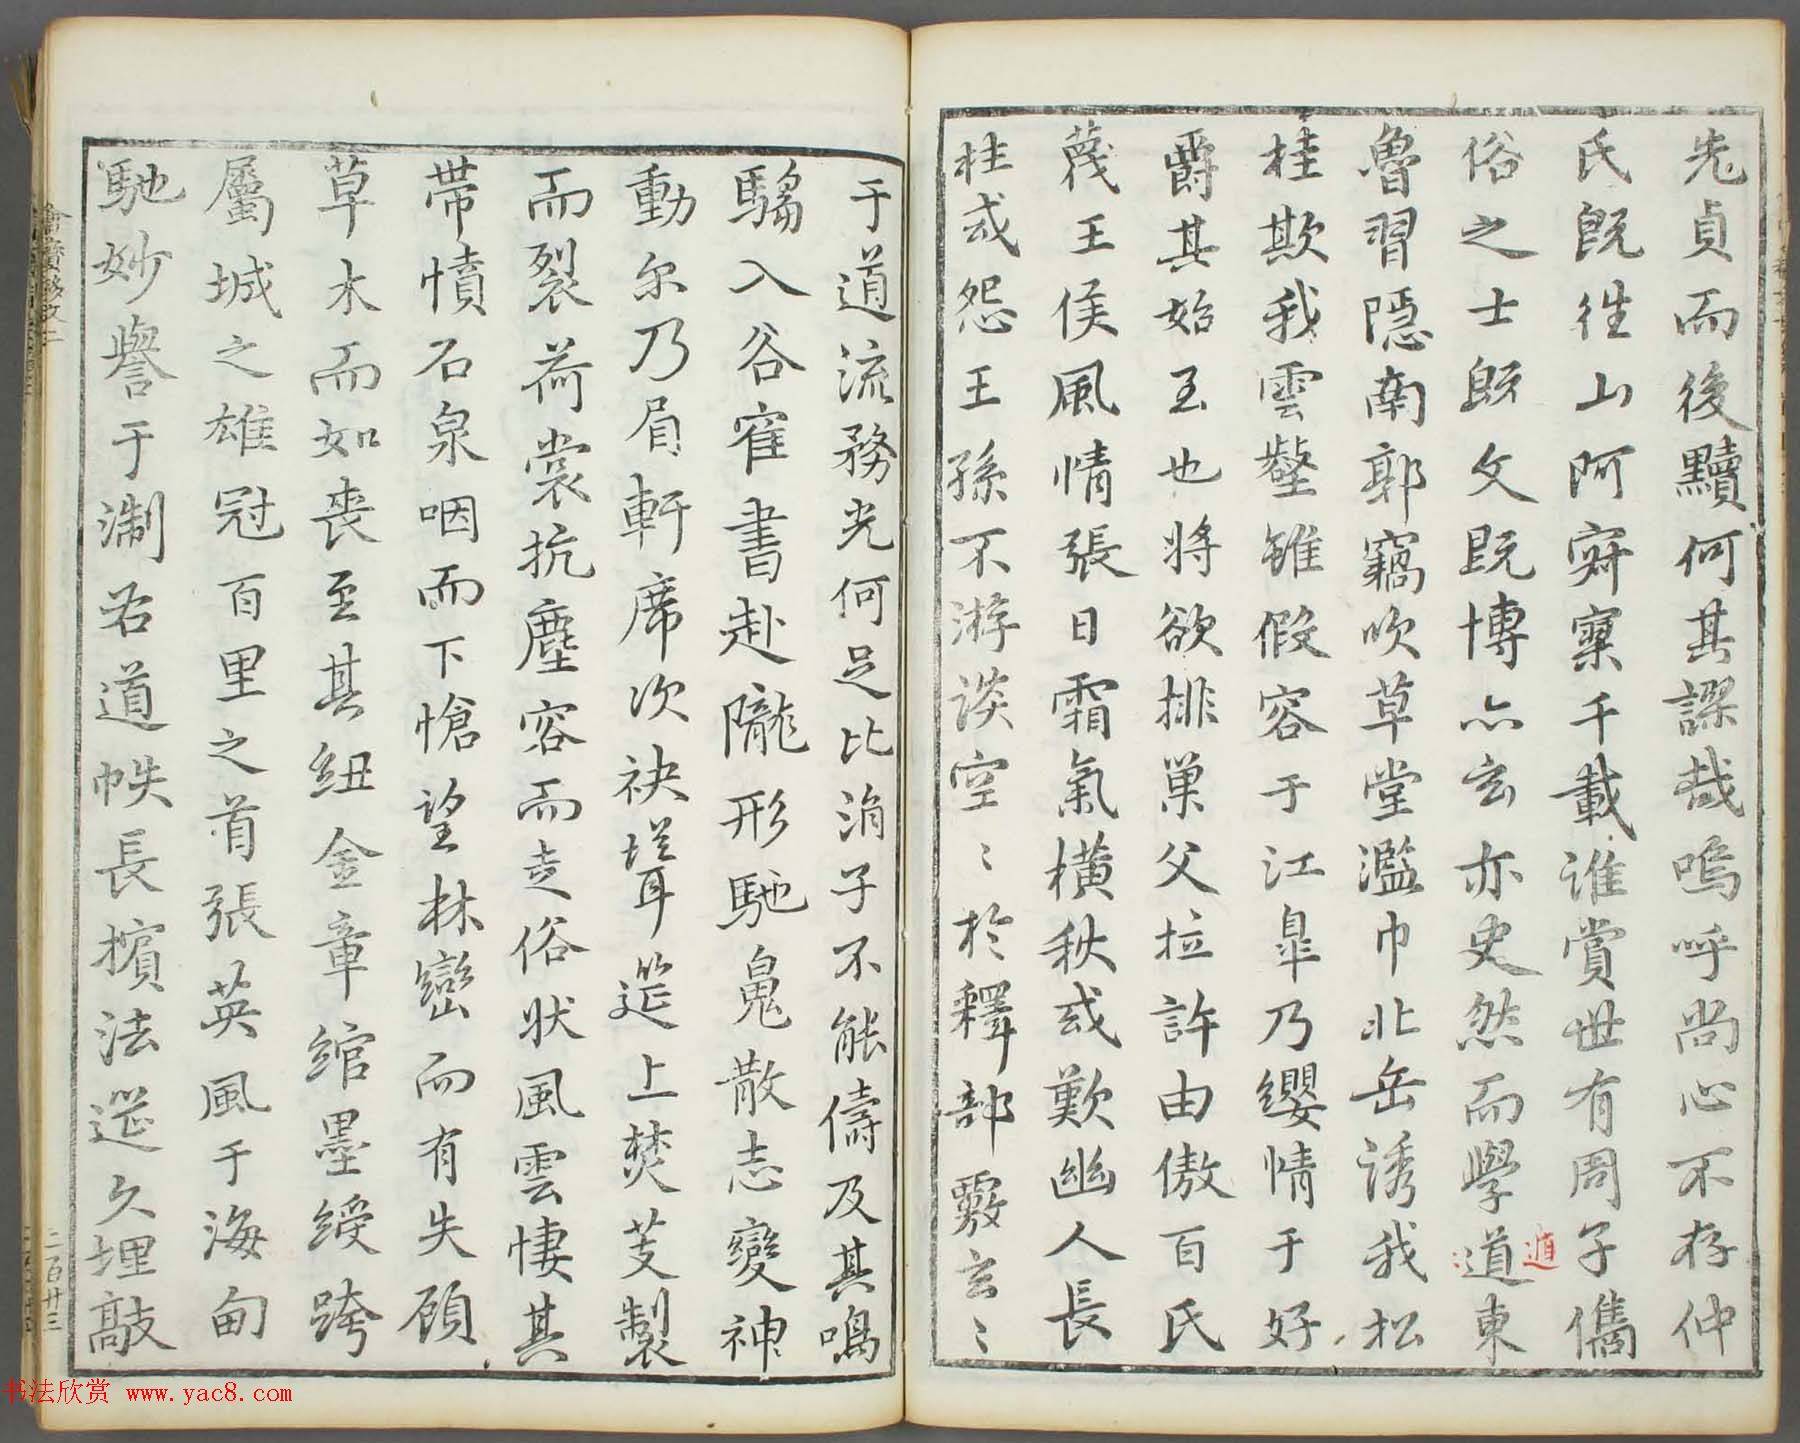 先貞而後黷何其謬哉嗚呼尚心不存仲
氏既往山阿寂寞千載誰賞世有周子儁
俗之士既文既博亦玄亦史然而學道東
遁
魯習隱南郭竊吹草堂濫巾北岳誘我松
桂欺我雲壑雖假容于江皐乃纓情于好
爵其始至也將欲排巢父拉許由傲百氏
蔑王侯風情張日霜氣橫秋或歎幽人長
往或怨王孫不游談空〻於釋部覈玄〻
于道流務光何足比涓子不能儔及其鳴
騶入谷寉書赴隴形馳鬼散志變神
動尔乃眉軒席次袂聳筵上焚芰製
而裂荷裳抗塵容而走俗状風雲悽其
帶憤石泉咽而下愴望林巒而有失顧
草木而如喪至其紐金章綰墨綬跨
屬城之雄冠百里之首張英風于海甸
馳妙譽于淛右道帙長擯法筵久埋敲
二百廿三
书法欣赏 www.yac8.com